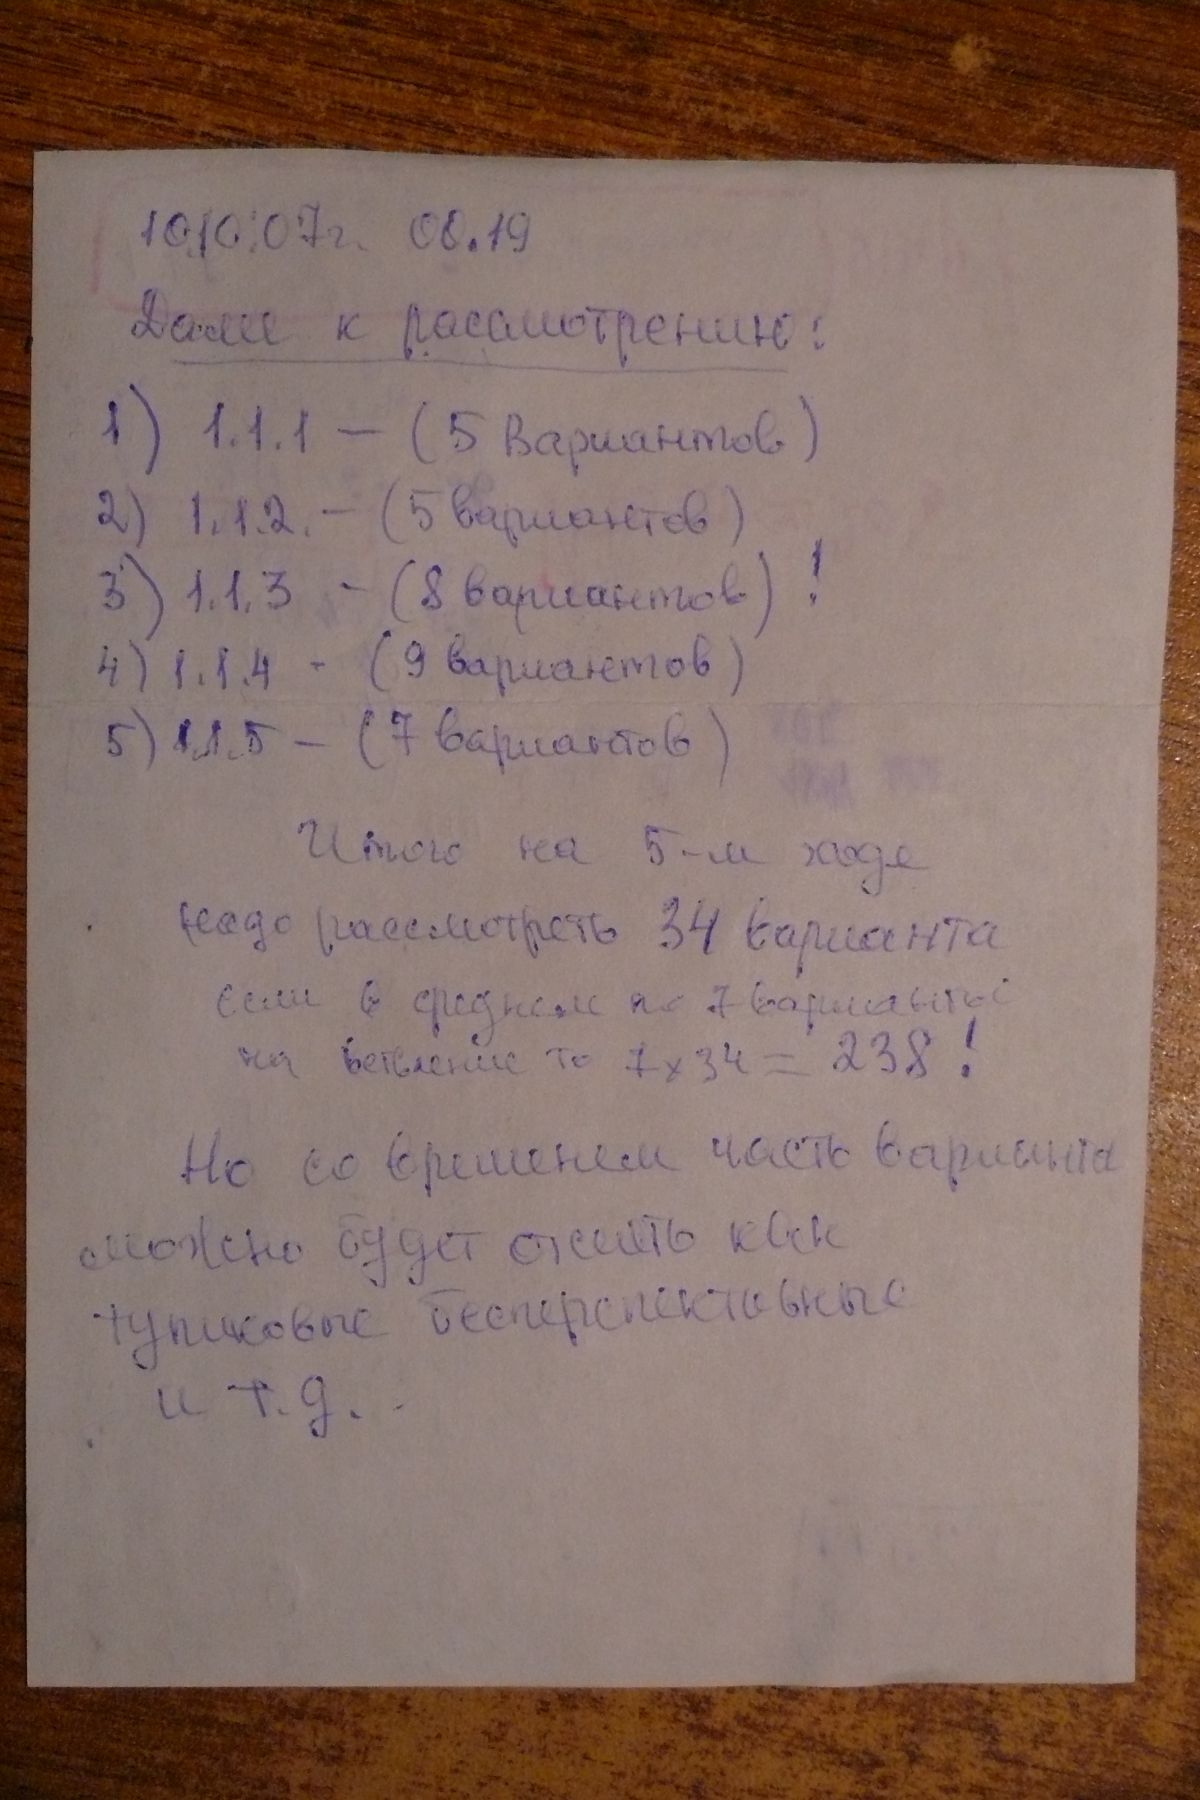 10.10.07г. 08.19
Дали к рассмотрению:
1) 1.1.1 – (5 Вариантов)
2) 1.1.2. – (5 вариантов)
3) 1.1.3 - (8 вариантов) !
4) 1.1.4 - (9 вариантов)
5) 1.1.5 – (7 вариантов)
Итого на 5-м ходе
надо рассмотреть 34 варианта
если в среднем по 7 варианты
на ветвление то 7x34 = 238!
Но со временем часть варианта
можно будет как
тупиковые бесперспективные
и т.д.